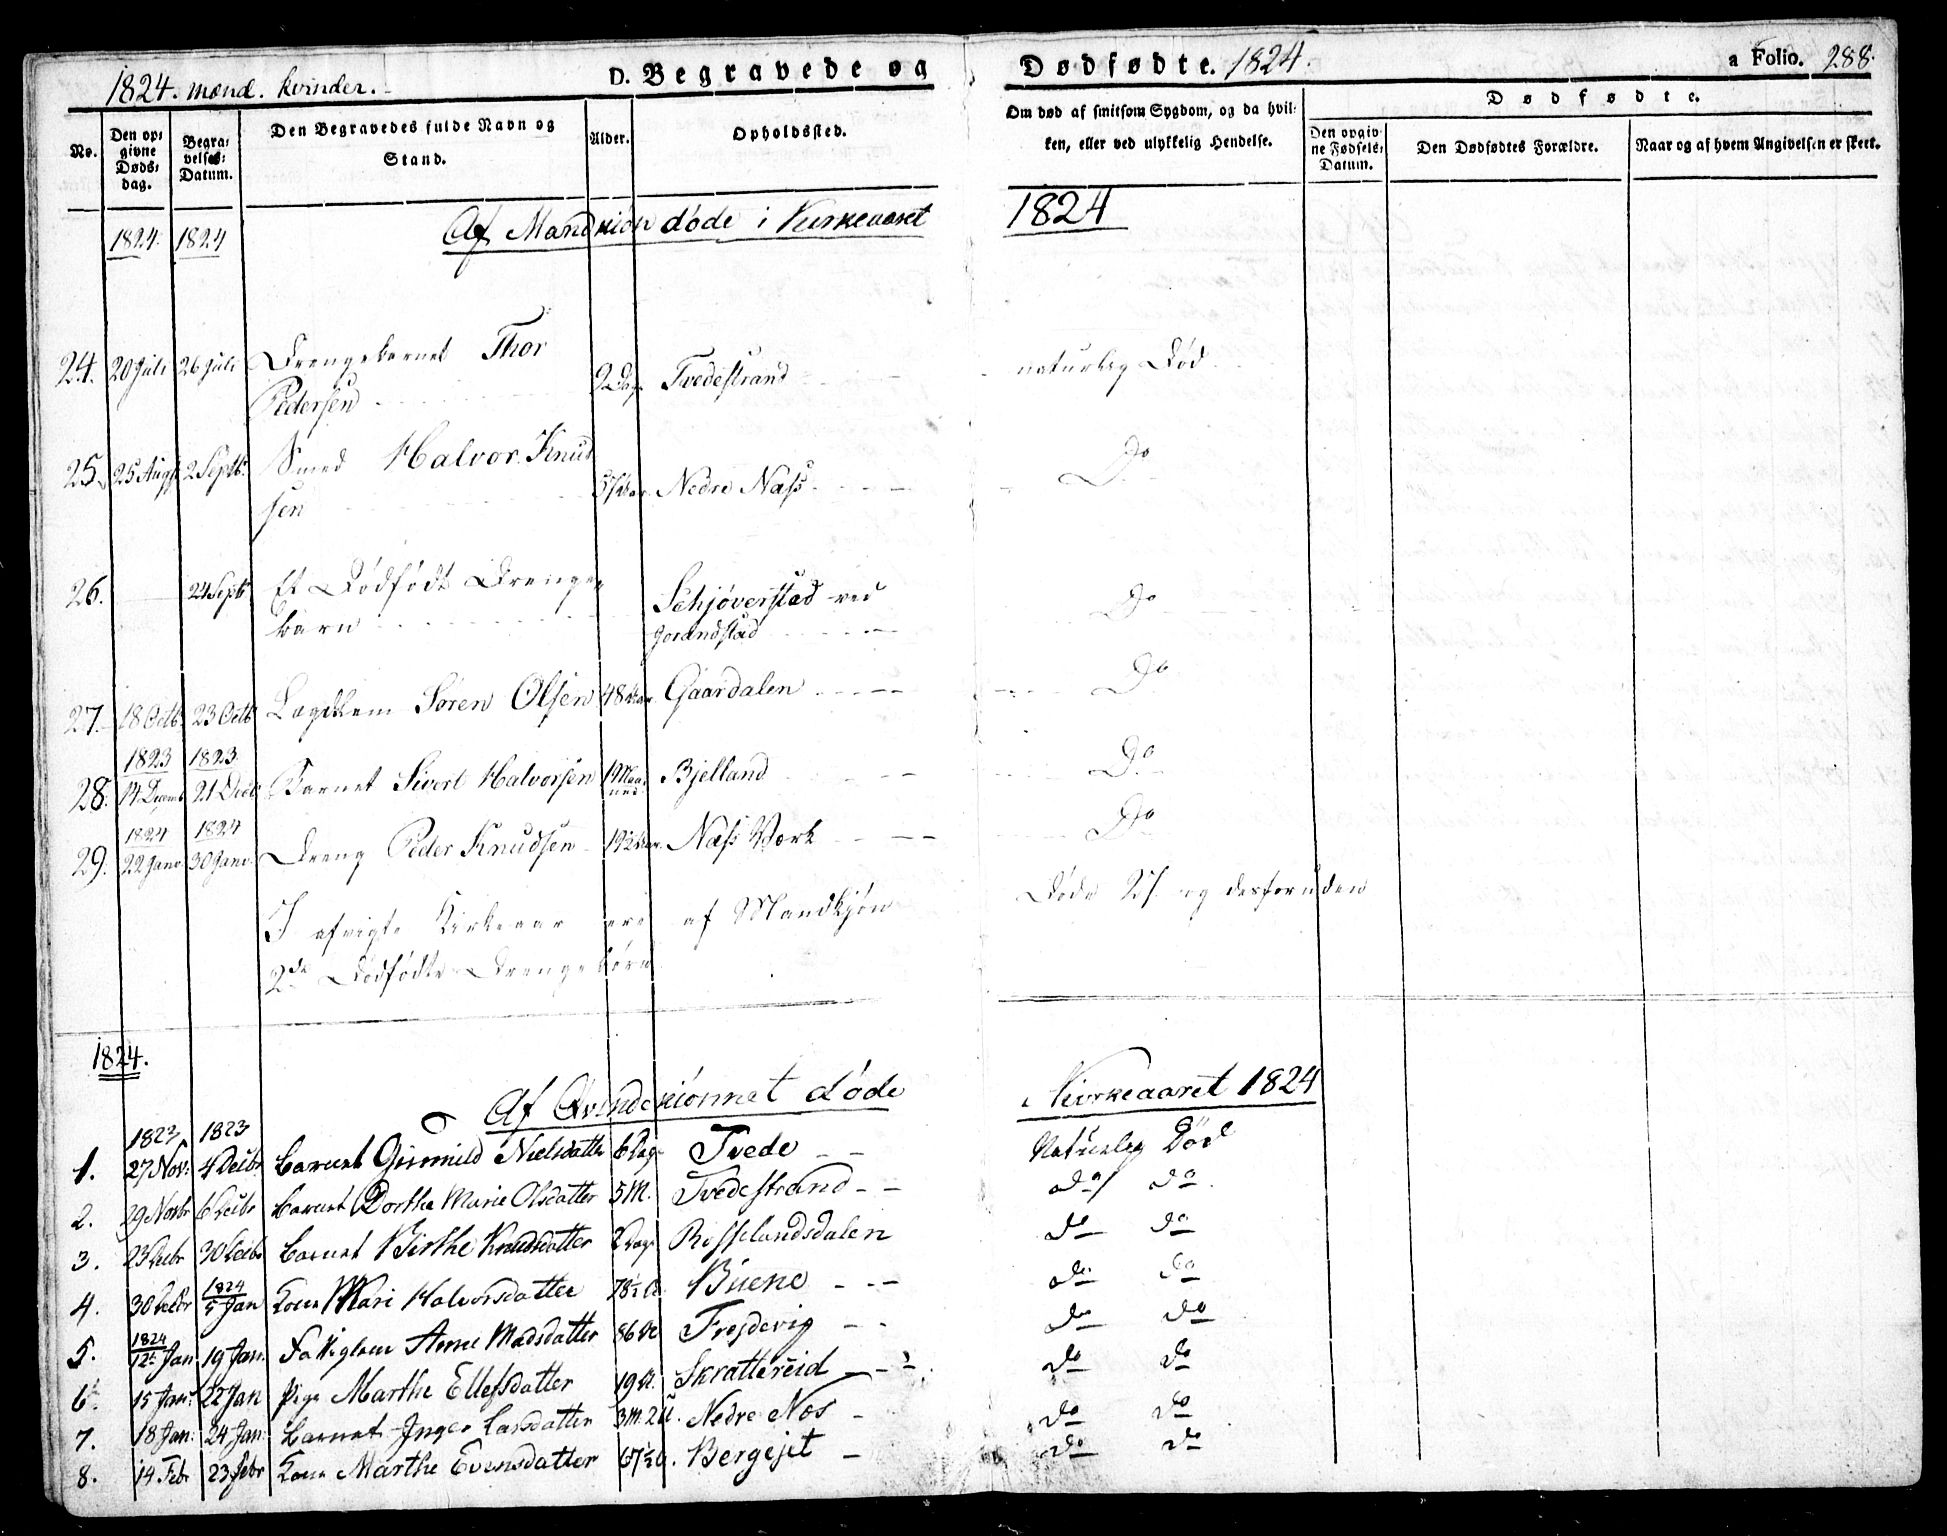 1824. mænd. kvinder.
D. Begravede og Dødfødte. 1824.
a Folio. 288.
No.
Den opgivne Dødsdag.
Begravelses-Datum.
Den Begravedes fulde Navn og Stand.
Alder.
Opholdssted.
Om død af smitsom Sygdom, og da hvilken, eller ved ulykkelig Hendelse.
Dødfødte.
Den opgivne Fødsels-Datum.
Den Dødfødtes Forældre.
Naar og af hvem Angivelsen er skeet.
1824. 1824 Af Mandkiøn døde i Kirkeaaret 1824
24. 20 Juli 26 Juli Drengebarnet Thor
Pedersen 2 Dage Tvedestrand naturlig Død
25. 25 Augs 2 Septb. Smed Halvor Knud
sen Nedre Næss Do
26. 24 Septb Et Dødfødt Drenge
barn Schjøverstad ved
Jorandstad Do
27. 18 Octb. 23 Octb Lægdslem Søren Olsen 48 Aar Gaardalen Do
1823 1823
28. 14 Decemb 21 Decb Barnet Sivert Halvorsen 1 Maaned Bjelland Do
1824 1824
29. 22 Janv 30 Janv. Dreng Peder Knudsen Næss Værk Do
I afvigte Kirkeaar ere af Mandkjøn Døde 27 og desforuden
2de Dødfødte Drengebørn
1824.
Af Qvindekiønnet døde i Kirkeaaret 1824
1823 1823
1. 27 Nov: 4 Decbr. barnet Gunnild Nielsdatter 6 Dage Tvede Naturlig Død
2. 29 Novbr 6 Decbr barnet Dorthe Marie Olsdatter 5 M. Tvedestrand do do
3. 23 Decbr 30 Decbr barnet Birthe Knudsdatter 2 Dage Rosselandsdalen do do
4. 30 Decbr 1824 5 Jan Kone Mari Halvorsdatter Buene do do
5. 1824 12te Jan 19 Jan. Fattiglem Anne Madsdatter 86 Frejdevig do do
6. 15 Jan: 22 Jan Pige Marthe Ellefsdatter 19 A. Skrattereid do do
7. 18 Jan: 24 Jan: barnet Inger Larsdatter 3 M. 2 U. Nedre Nes do do
8. 14 Febr 23 Febr Kone Marthe Evensdatter Bergejet do do